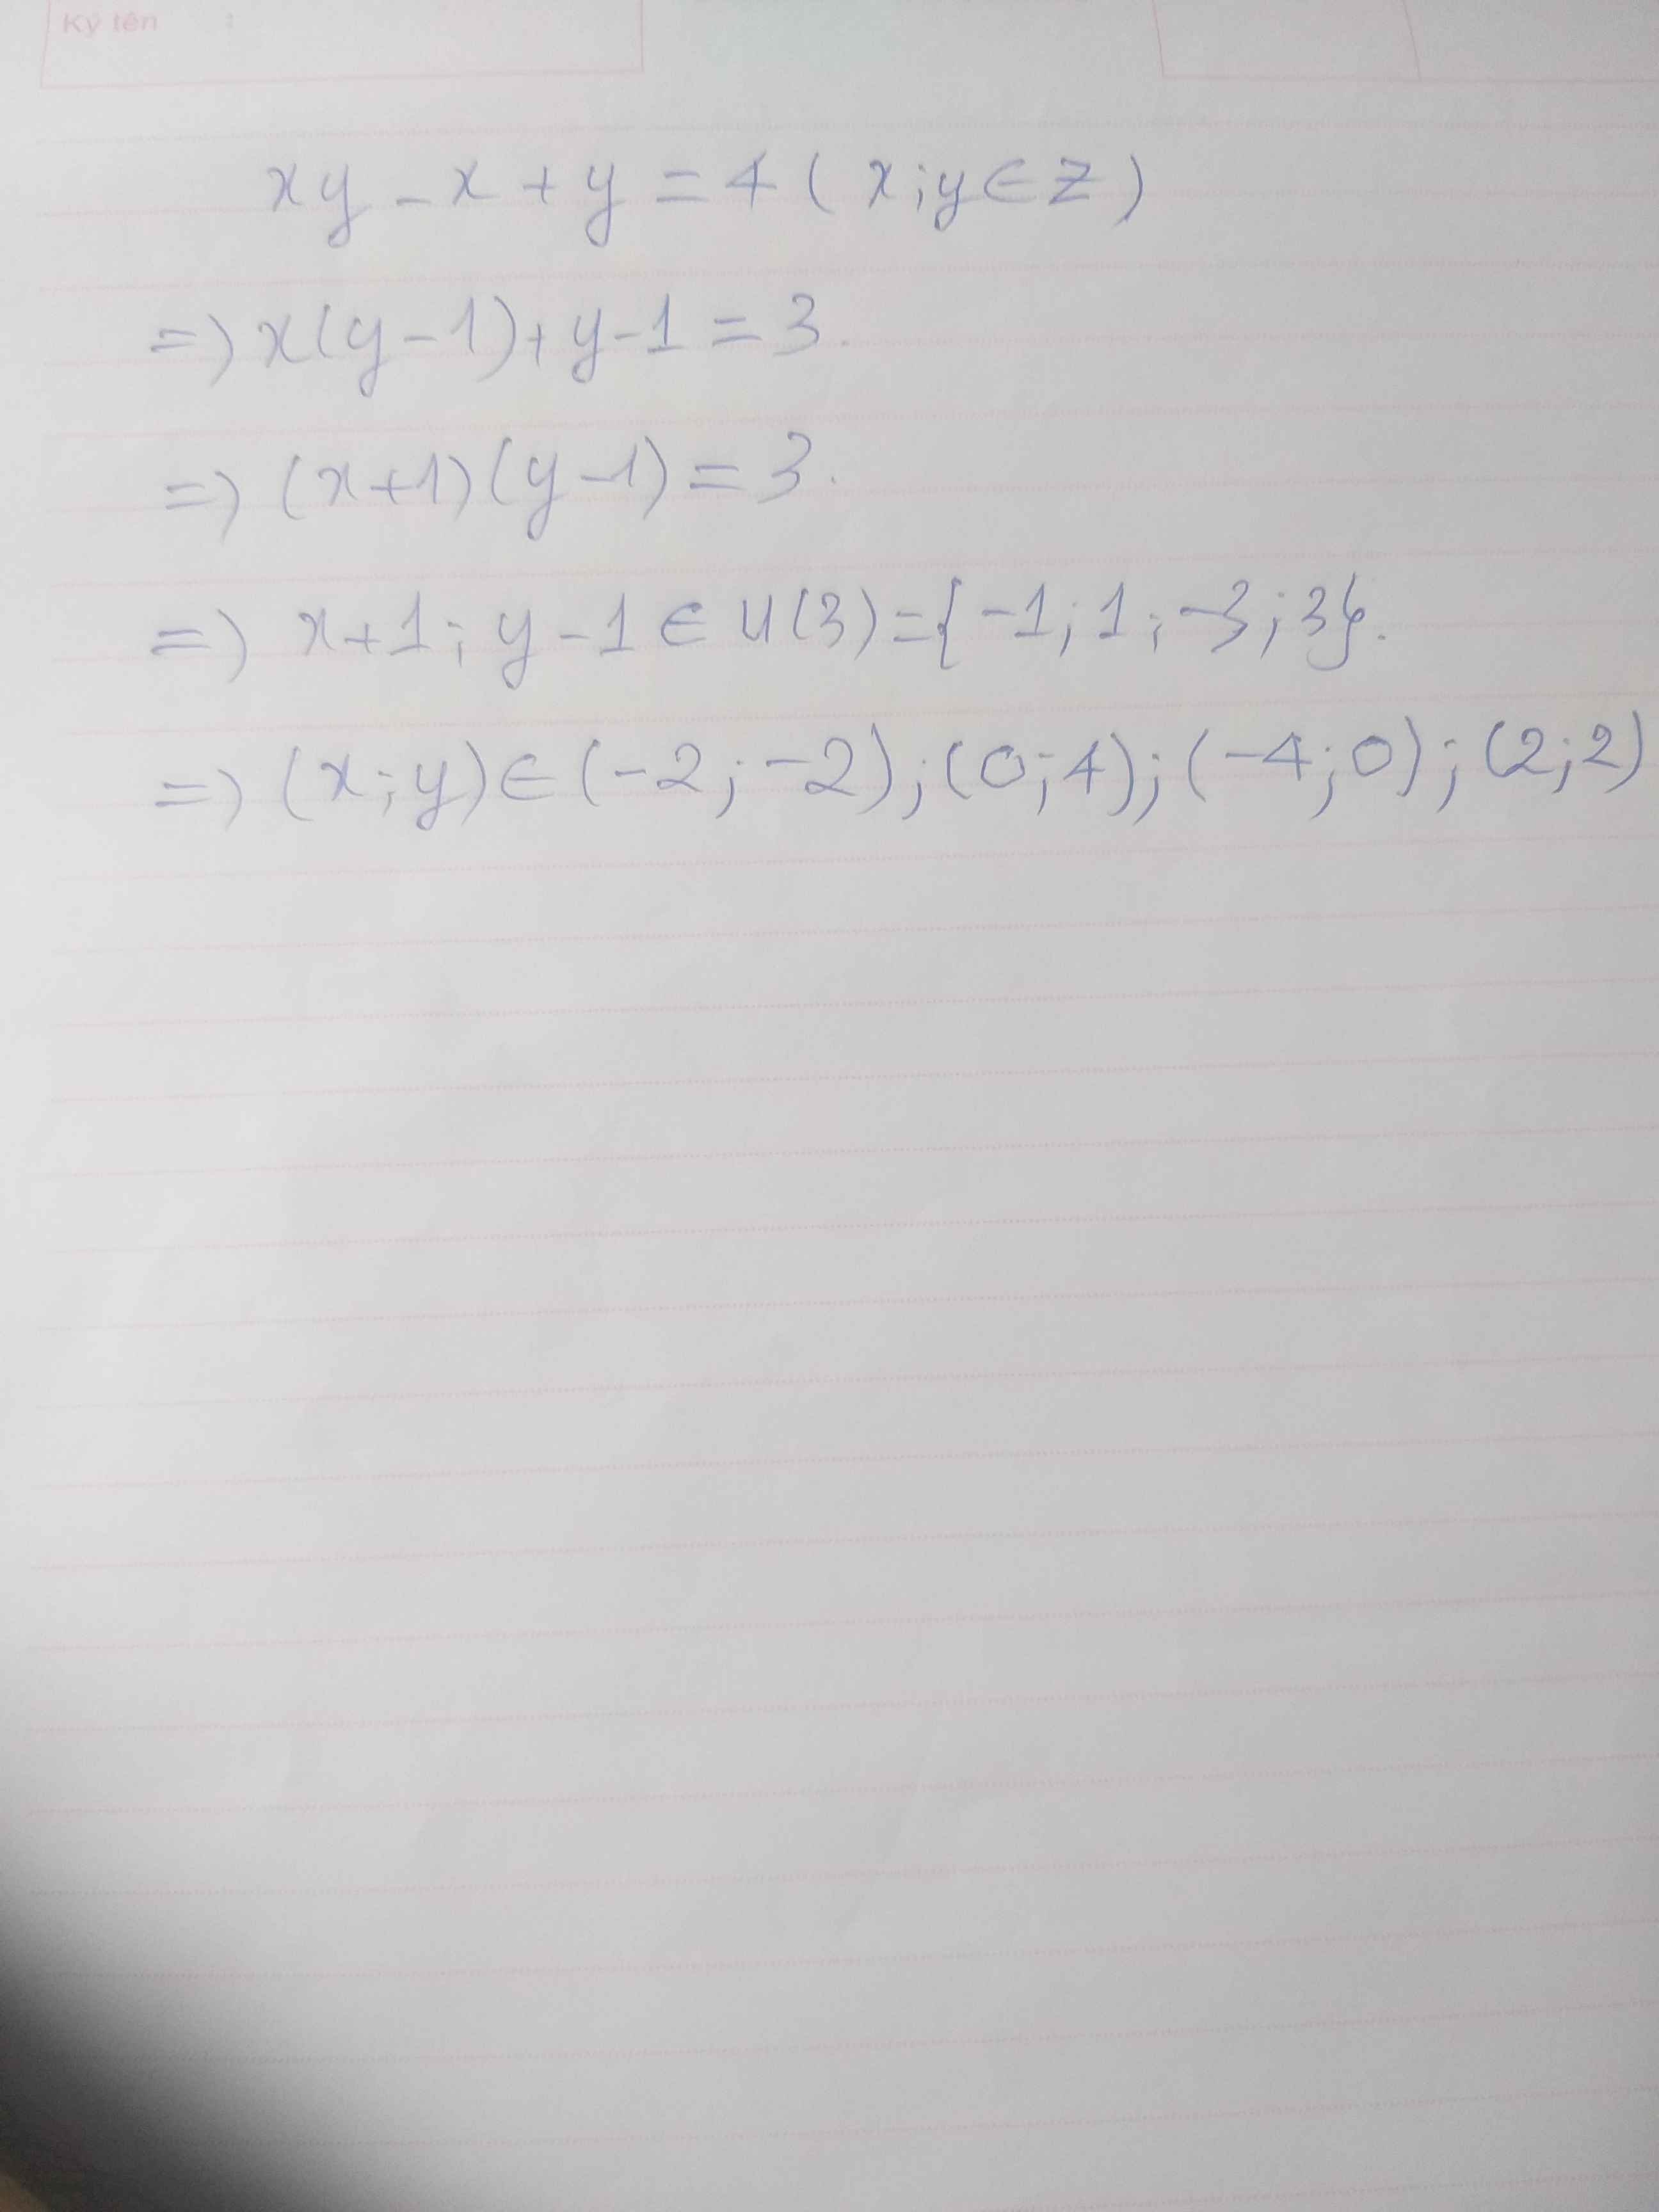 Ký tên :
xy - x + y = 4 ( x ; y ∈ Z )
=) x(y - 1) + y - 1 = 3.
=) (x + 1)(y - 1) = 3.
=) x + 1 ; y - 1 ∈ U(3) = { -1 ; 1 ; -3 ; 3}.
=) (x ; y) ∈ (-2 ; -2) ; (0 ; 4) ; (-4 ; 0) ; (2 ; 2)